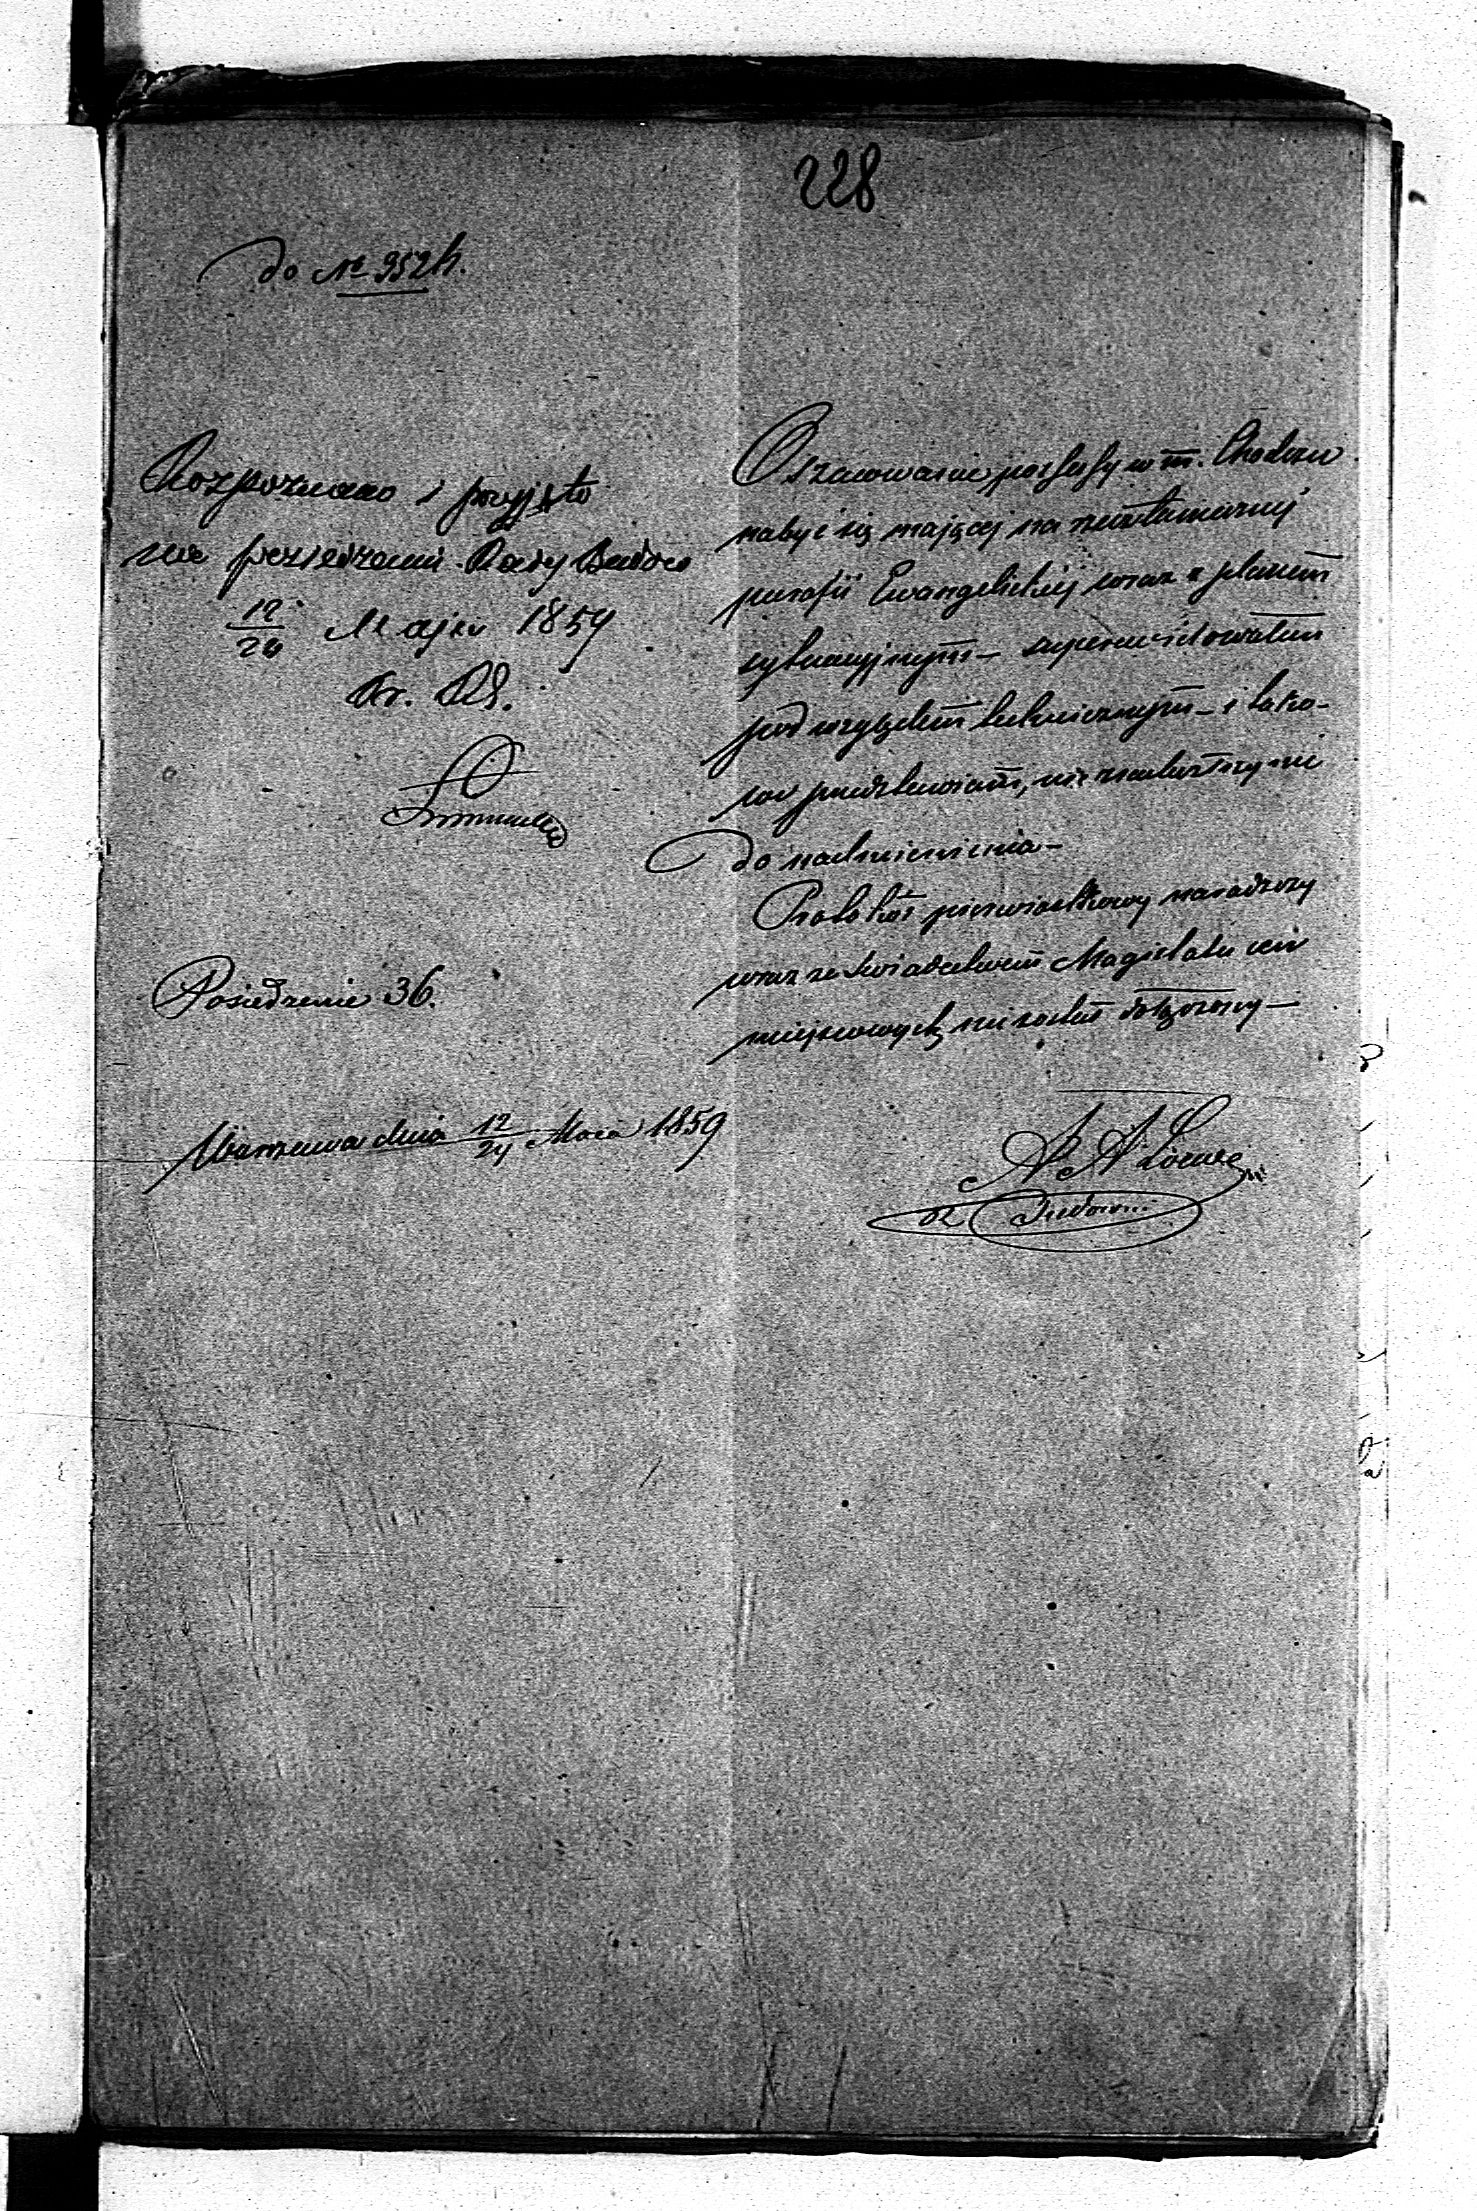 228
do № 952 h.
Rozpoznano i przyjęto
na posiedzeniu Rady Budow
12/24 Maja 1859
Posiedzenie 36.
Warszawa dnia 12/24 Maia 1859
Oszacowanie possessy w m. Chodczu
nabyć się mającej na rzecz
parafii Ewangelickiej wraz z planem
sytuacyjnym – superrewidowałem
pod względem technicznym – i tako-
we przedstawiam, nie znalazłszy nic
do nadmienienia –
Protokół pierwiastkowy naradczy
wraz ze świadectwem Magistratu cen
miejscowych nie został dołączony –